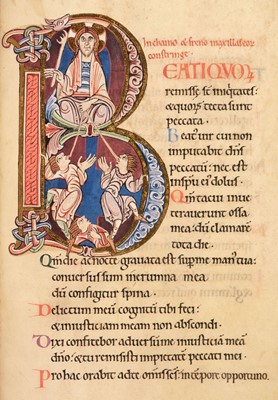 In chamo & freno maxillas eorum
constringe
BEATI QVORV̅
remissę s̅t iniq̅tates:
& quorum tecta sunt
peccata.
Beat' uir cui non
imputabit dn̅s
peccatū: nec est
in sp̅u ei' dolus.
Qm̅ tacui inue
terauerunt ossa
mea: dū clamarē
tota die.
Qm̅ die ac nocte grauata est sup me man' tua:
conuersus sum in erumna mea
dū configitur spina.
Delictum meū cognitū tibi feci:
& iniusticiam meam non abscondi.
Dixi confitebor aduersum me iniusticiā meā
dn̅o: & tu remisisti impietatē peccati mei.
Pro hac orabit ad te omīs sc̅s: in tempore oportuno.